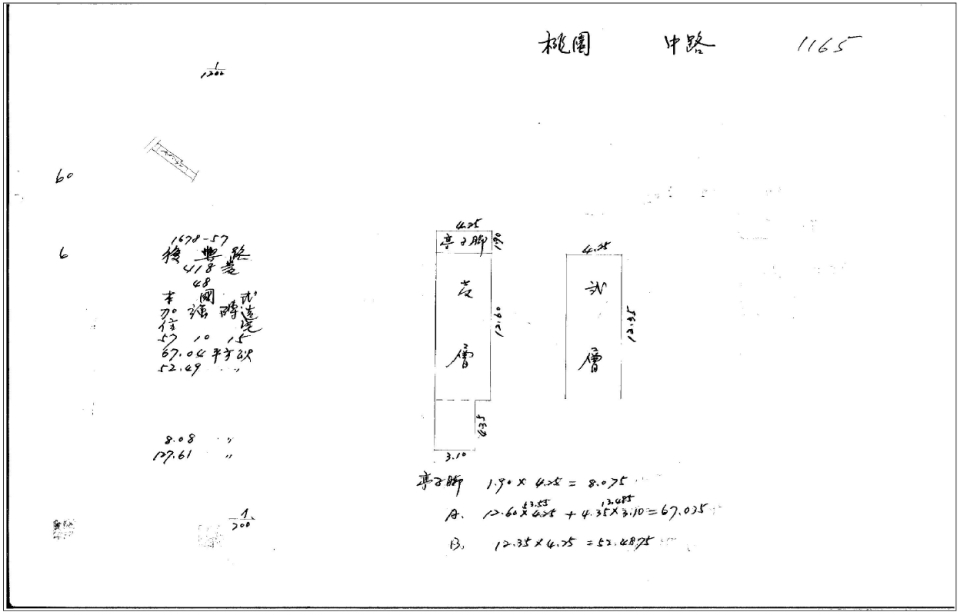 桃園 中路 1165
1/1200
60
6
1678-57
復興路
418巷
48
本國式
加強磚造
住宅
57 10 15
67.04 平方公尺
52.49 〃
8.08 〃
127.61 〃
1/200
4.25
亭子脚
1.90
壹層
12.60
4.35
3.10
4.25
弍層
12.35
亭子脚 1.90 × 4.25 = 8.075
53.55 13.485
A. 12.60 × 4.25 + 4.35 × 3.10 = 67.035
B. 12.35 × 4.25 = 52.4875